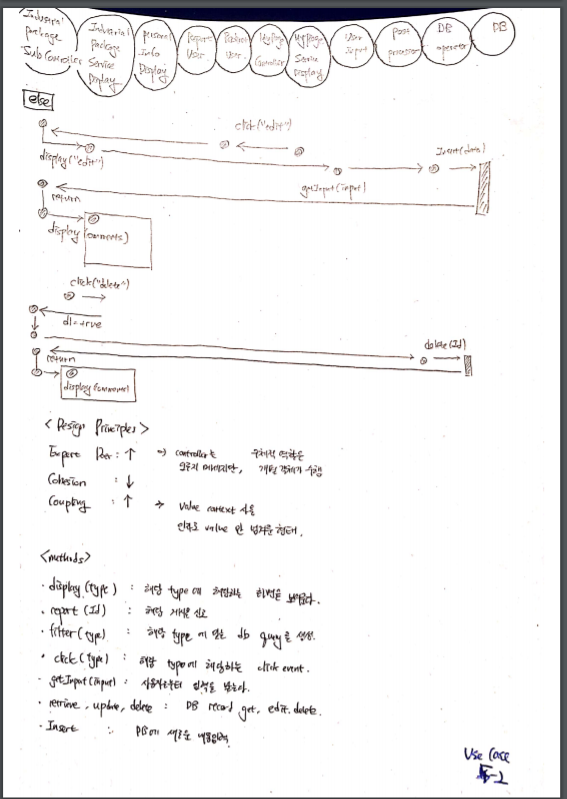 Industrial package Sub Controller
Industrial Package Service Display
personal Info Display
Report User
User
Mypage Controller
Mypage Service Display
User Input
Post processor
DB operator
DB
else
click("edit")
display("edit")
Insert(data)
getInput(input)
return
display(comments)
click("delete")
delete(Id)
return
display(comment)
< Design Principles >
Expert : ↑ ⇒ controller는 구체적 역할은
개별 객체가 수행
Cohesion : ↓
Coupling : ↑ → Value context 사용
value 만 형태.
<methods>
· display(type) : 해당 type에 해당하는 화면을 보여준다.
· report(Id) : 해당 게시물 신고
· filter(type) : 해당 type에 맞는 db query를 생성.
· click(type) : 해당 type에 해당하는 click event.
· getInput(input) : 사용자로부터 입력을 받는다.
· retrieve, update, delete : DB record get, edit, delete.
· Insert : DB에 새로운 내용입력
Use Case